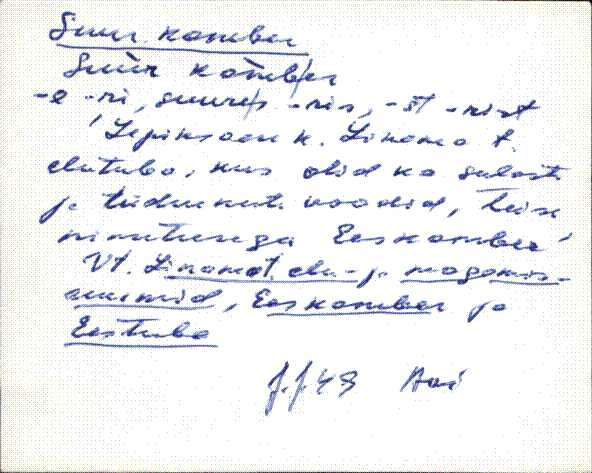 Suur kamber
Suur kamber
-e -ri, suures -ris, -st -rist
'Lepiksaare k. Linamo t.
elutuba, kus olid ka sulaste
ja tüdrukute voodid, teise
nimetusega Eeskamber'
Vt. Linamo t. elu- ja magamis-
ruumid, Eeskamber ja
Eestuba